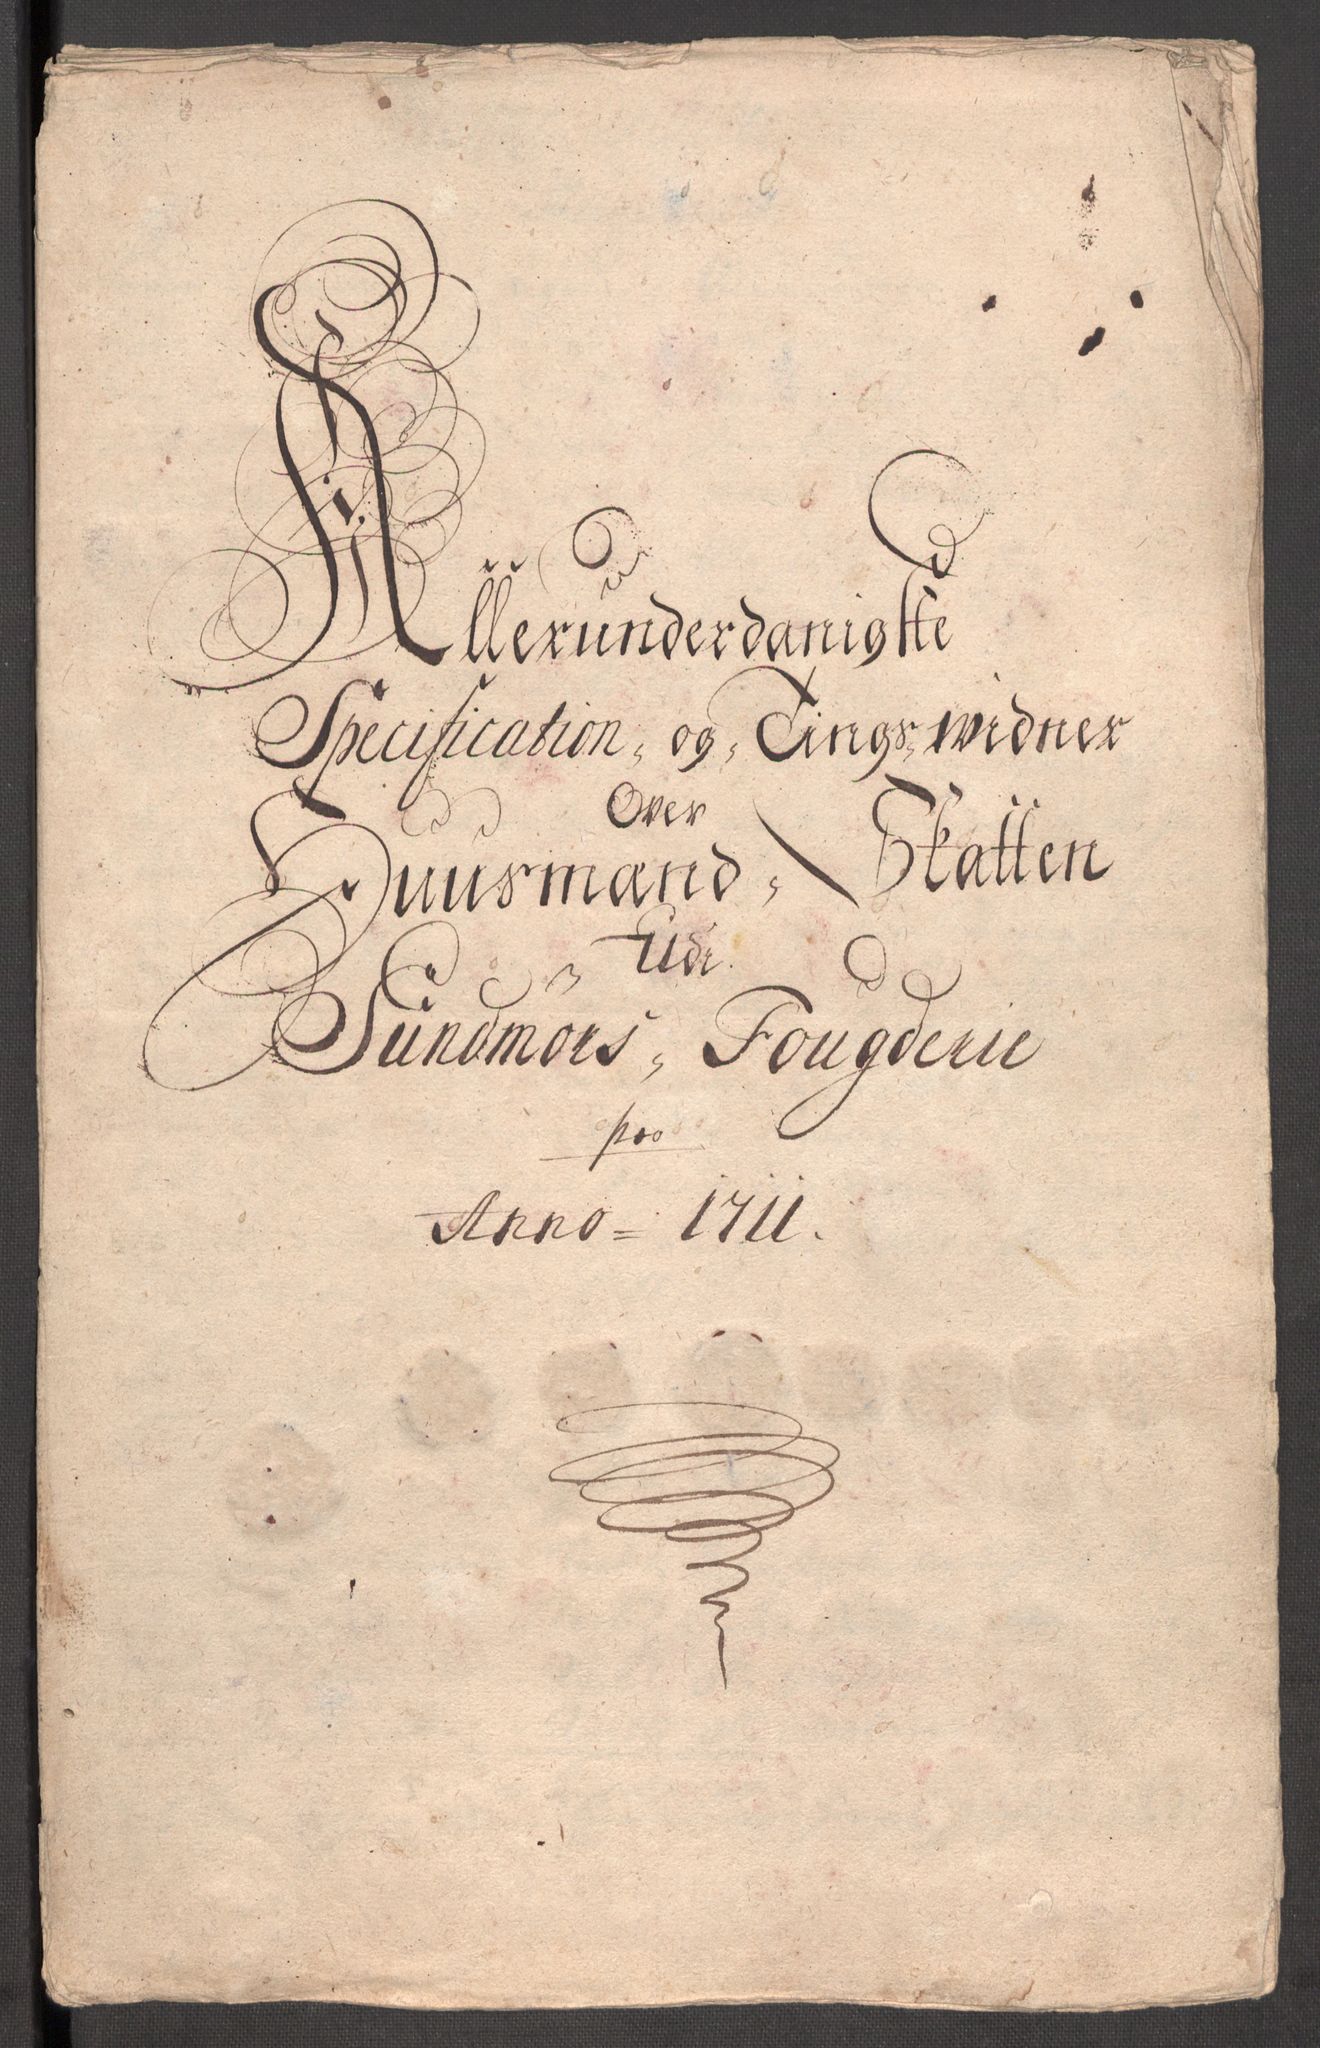 Allerunderdanigste
Specification, og, Tings, widner
Over
Huusmænd, Skatten
Udi
Sundmørs, Fougderie
pro
Anno = 1711.